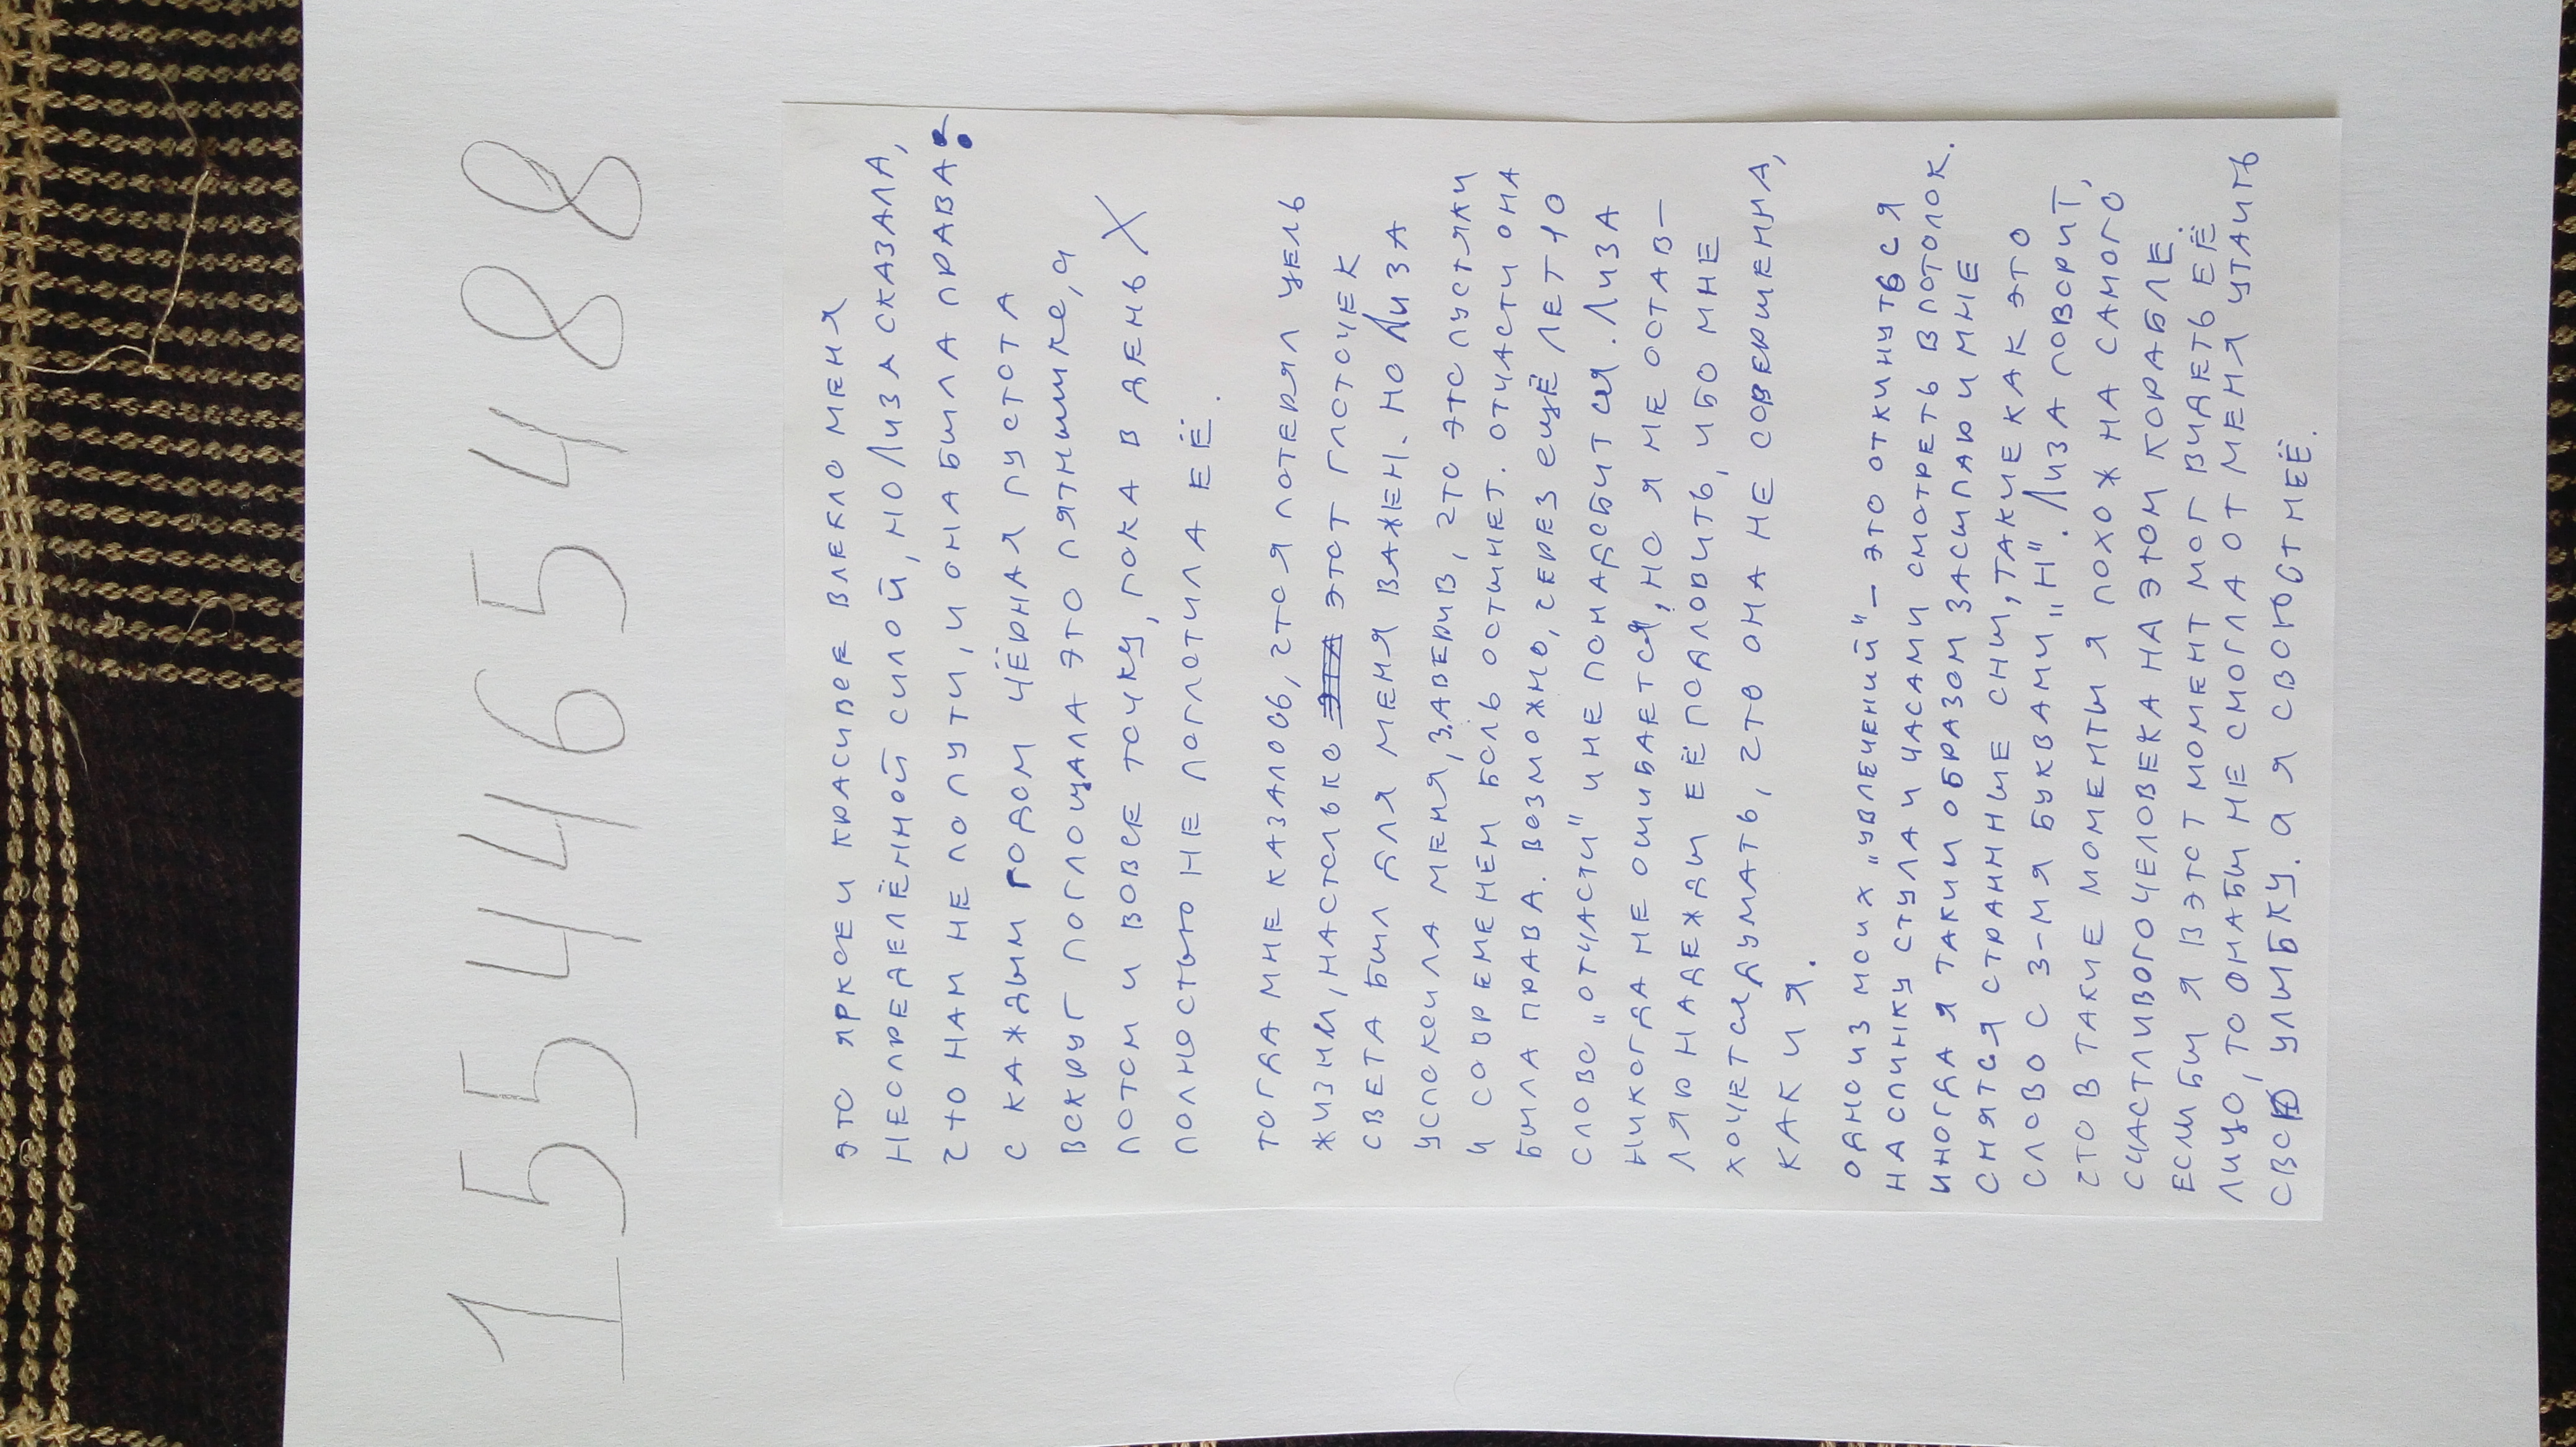 155446548 8
ЭТО ЯРКОЕ И КРАСИВОЕ ВЛЕКЛО МЕНЯ
НЕОПРЕДЕЛЁННОЙ СИЛОЙ, НО ЛИЗА СКАЗАЛА,
ЧТО НАМ НЕ ПО ПУТИ, И ОНА БЫЛА ПРАВА:
С КАЖДЫМ ГОДОМ ЧЁРНАЯ ПУСТОТА
ВОКРУГ ПОГЛОЩАЛА ЭТО ПЯТНЫШКО, А
ПОТОМ И ВОВСЕ ТОЧКУ, ПОКА В ДЕНЬ X
ПОЛНОСТЬЮ НЕ ПОГЛОТИЛА ЕЁ.
ТОГДА МНЕ КАЗАЛОСЬ, ЧТО Я ПОТЕРЯЛ ЦЕЛЬ
ЖИЗНИ, НАСТОЛЬКО ЭТА ЭТОТ ГЛОТОЧЕК
СВЕТА БЫЛ ДЛЯ МЕНЯ ВАЖЕН. НО ЛИЗА
УСПОКОИЛА МЕНЯ, ЗАВЕРИВ, ЧТО ЭТО ПУСТЯКИ
И СО ВРЕМЕНЕМ БОЛЬ ОСТЫНЕТ. ОТЧАСТИ ОНА
БЫЛА ПРАВА. ВОЗМОЖНО, ЧЕРЕЗ ЕЩЁ ЛЕТ 10
СЛОВО "ОТЧАСТИ" И НЕ ПОНАДОБИТСЯ. ЛИЗА
НИКОГДА НЕ ОШИБАЕТСЯ, НО Я НЕ ОСТАВ-
ЛЯЮ НАДЕЖДЫ ЕЁ ПОДЛОВИТЬ, ИБО МНЕ
ХОЧЕТСЯ ДУМАТЬ, ЧТО ОНА НЕ СОВЕРШЕННА,
КАК И Я.
ОДНО ИЗ МОИХ "УВЛЕЧЕНИЙ" - ЭТО ОТКИНУТЬСЯ
НА СПИНКУ СТУЛА И ЧАСАМИ СМОТРЕТЬ В ПОТОЛОК.
ИНОГДА Я ТАКИМ ОБРАЗОМ ЗАСЫПАЮ И МНЕ
СНЯТСЯ СТРАННЫЕ СНЫ, ТАКИЕ КАК ЭТО
СЛОВО С 3-МЯ БУКВАМИ "Н". ЛИЗА ГОВОРИТ,
ЧТО В ТАКИЕ МОМЕНТЫ Я ПОХОЖ НА САМОГО
СЧАСТЛИВОГО ЧЕЛОВЕКА НА ЭТОМ КОРАБЛЕ.
ЕСЛИ БЫ Я В ЭТОТ МОМЕНТ МОГ ВИДЕТЬ ЕЁ
ЛИЦО, ТО ОНА БЫ НЕ СМОГЛА ОТ МЕНЯ УТАИТЬ
СВОЮ УЛЫБКУ. А Я СВОЮ ОТ НЕЁ.